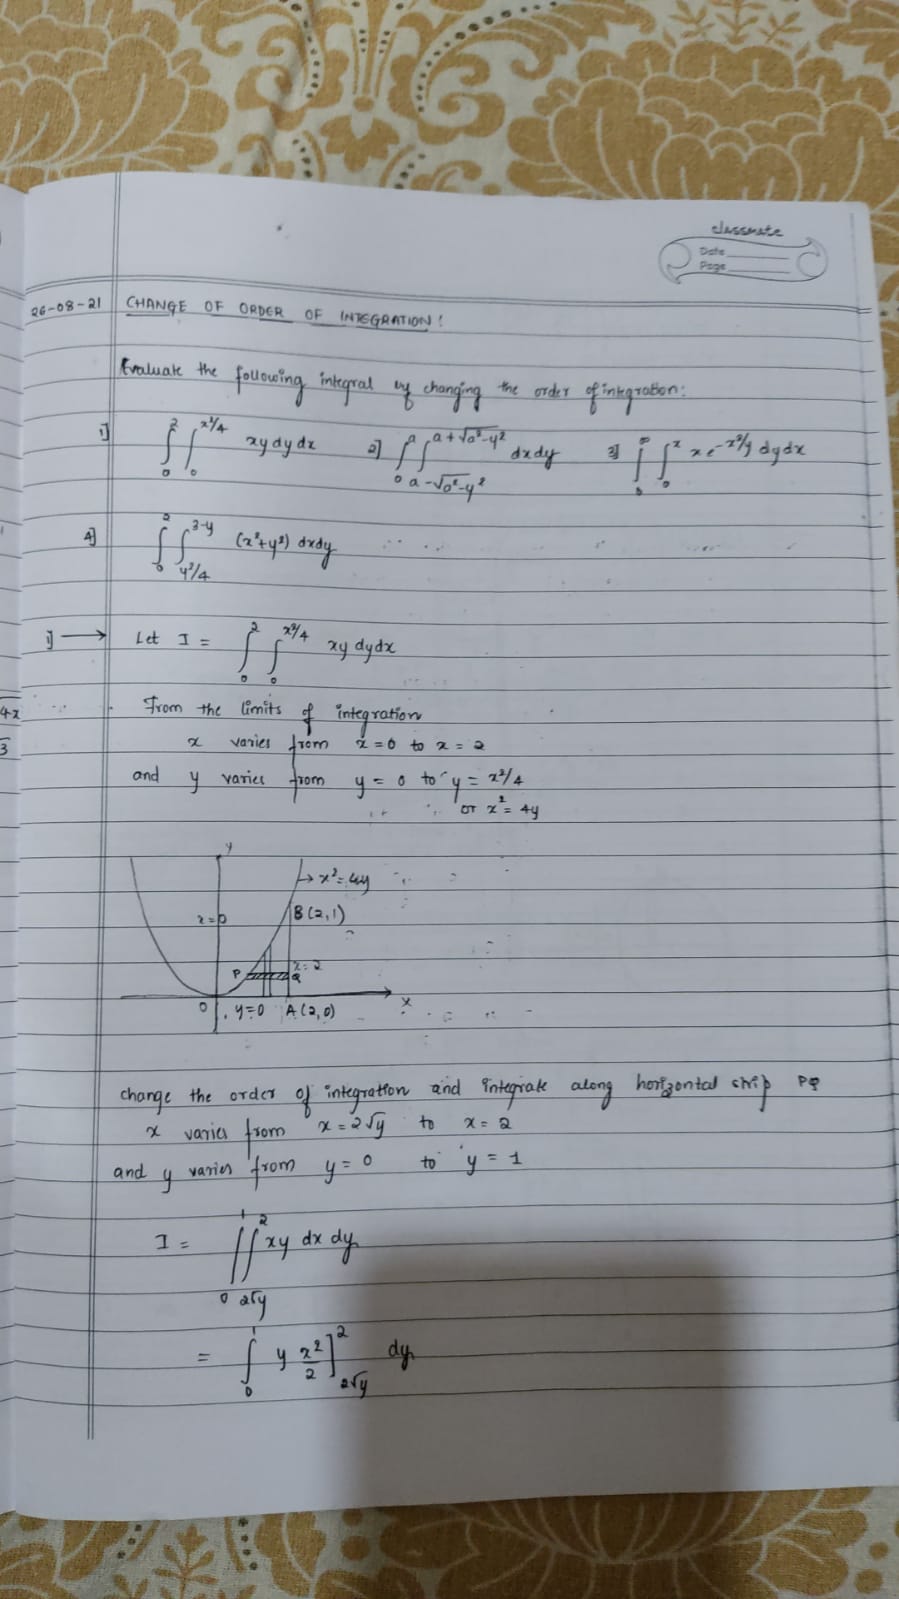 classmate
Date
Page
26-08-21 CHANGE OF ORDER OF INTEGRATION:
Evaluate the following integral by changing the order of integration:
1] ∫₀² ∫₀^(x²/4) xy dy dx 2] ∫₀^a ∫_(a-√(a²-y²))^(a+√(a²-y²)) dx dy 3] ∫₀^∞ ∫₀^x x e^(-x²/y) dy dx
4] ∫₀² ∫_(y²/4)^(3-y) (x²+y²) dx dy
1] → Let I = ∫₀² ∫₀^(x²/4) xy dy dx
4x
3
From the limits of integration
x varies from x=0 to x=2
and y varies from y=0 to y=x²/4
or x²=4y
y
→ x²=4y
x=0 B(2,1)
P x=2
Q
O y=0 A(2,0) x
change the order of integration and integrate along horizontal strip PQ
x varies from x=2√y to x=2
and y varies from y=0 to y=1
I = ∫₀¹ ∫_(2√y)² xy dx dy
= ∫₀¹ y x²/2 ]_(2√y)² dy